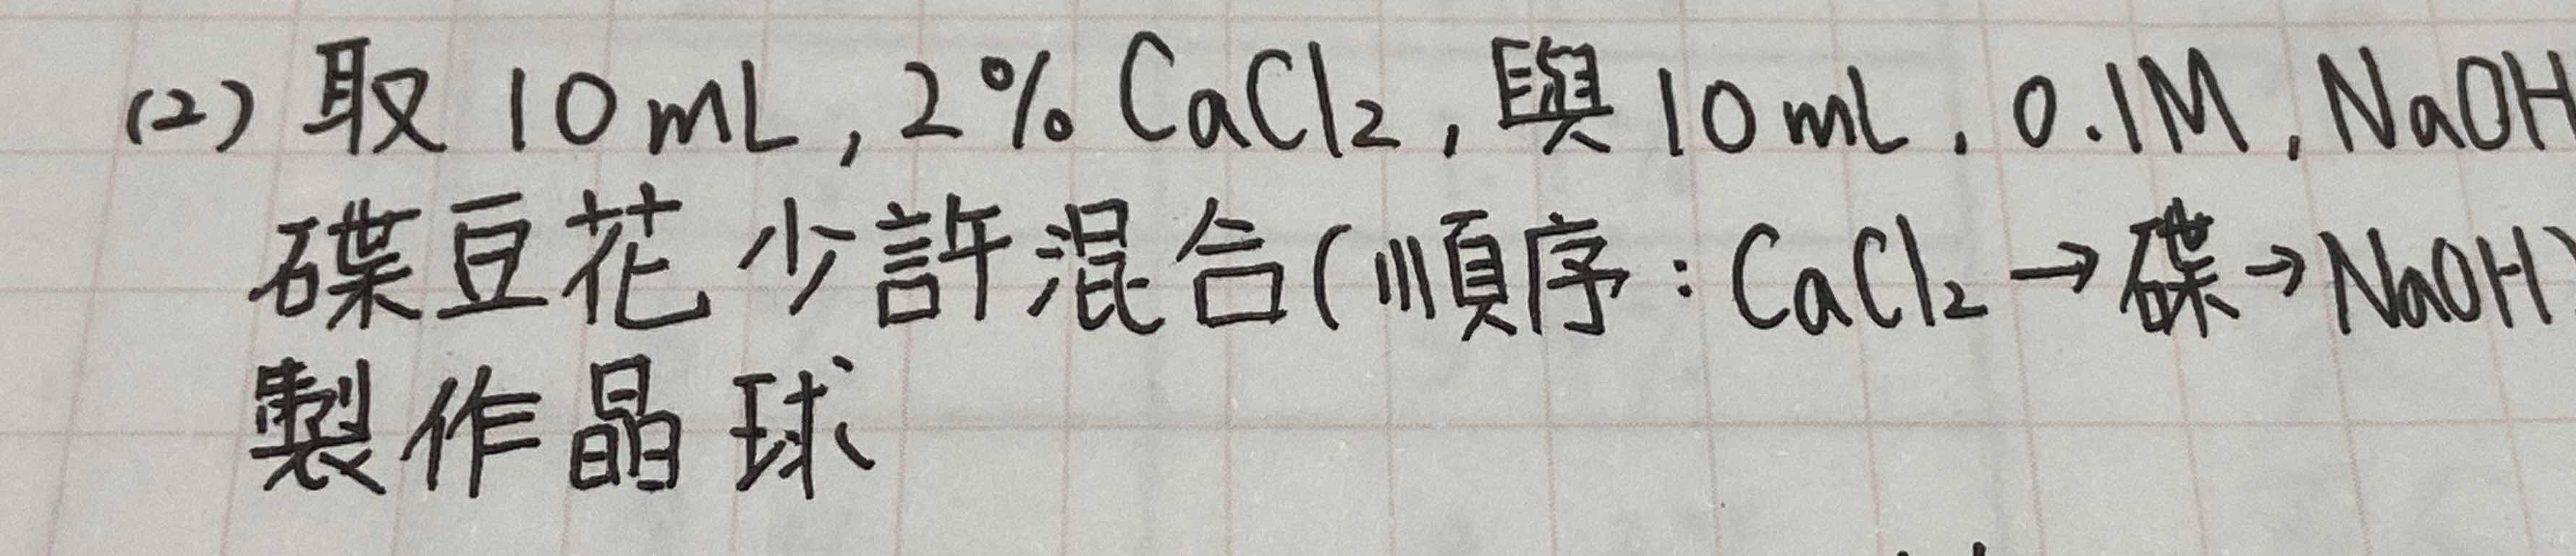 (2) 取 10 mL, 2% CaCl₂, 與 10 mL. 0.1M, NaOH
碟豆花少許混合(順序:CaCl₂→碟→NaOH)
製作晶球